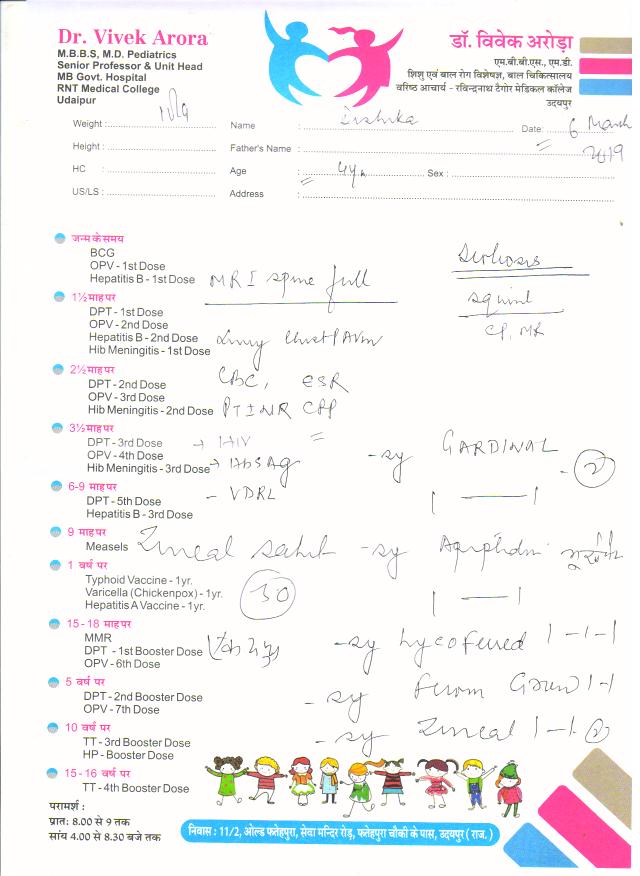 Dr. Vivek Arora
M.B.B.S, M.D. Pediatrics
Senior Professor & Unit Head
MB Govt. Hospital
RNT Medical College
Udaipur
डॉ. विवेक अरोड़ा
एम.बी.बी.एस., एम.डी.
शिशु एवं बाल रोग विशेषज्ञ, बाल चिकित्सालय
वरिष्ठ आचार्य - रविन्द्रनाथ टैगोर मेडिकल कॉलेज
उदयपुर
Weight : Name : Date: 6 March
Height : Father's Name : 2019
HC : Age : Sex :
US/LS : Address :
जन्म के समय
BCG
OPV - 1st Dose
Hepatitis B - 1st Dose MRI spine full
squint
CP, MR
1½ माह पर
DPT - 1st Dose
OPV - 2nd Dose
Hepatitis B - 2nd Dose
Hib Meningitis - 1st Dose
2½ माह पर
DPT - 2nd Dose CBC, ESR
OPV - 3rd Dose
Hib Meningitis - 2nd Dose PTINR
3½ माह पर
DPT - 3rd Dose → HIV
OPV - 4th Dose - sy GARDINAL
Hib Meningitis - 3rd Dose → HbSAg
6-9 माह पर
DPT - 5th Dose - VDRL
Hepatitis B - 3rd Dose
9 माह पर
Measels - sy
1 वर्ष पर
Typhoid Vaccine - 1yr.
Varicella (Chickenpox) - 1yr. 30
Hepatitis A Vaccine - 1yr.
15 - 18 माह पर
MMR
DPT - 1st Booster Dose - sy 1-1-1
OPV - 6th Dose
5 वर्ष पर
DPT - 2nd Booster Dose - sy 1-1
OPV - 7th Dose
10 वर्ष पर
TT - 3rd Booster Dose - sy 1-1 2
HP - Booster Dose
15 - 16 वर्ष पर
TT - 4th Booster Dose
परामर्श :
प्रातः 8.00 से 9 तक
सांय 4.00 से 8.30 बजे तक
निवास : 11/2, ओल्ड फतेहपुरा, सेवा मन्दिर रोड़, फतेहपुरा चौकी के पास, उदयपुर ( राज. )